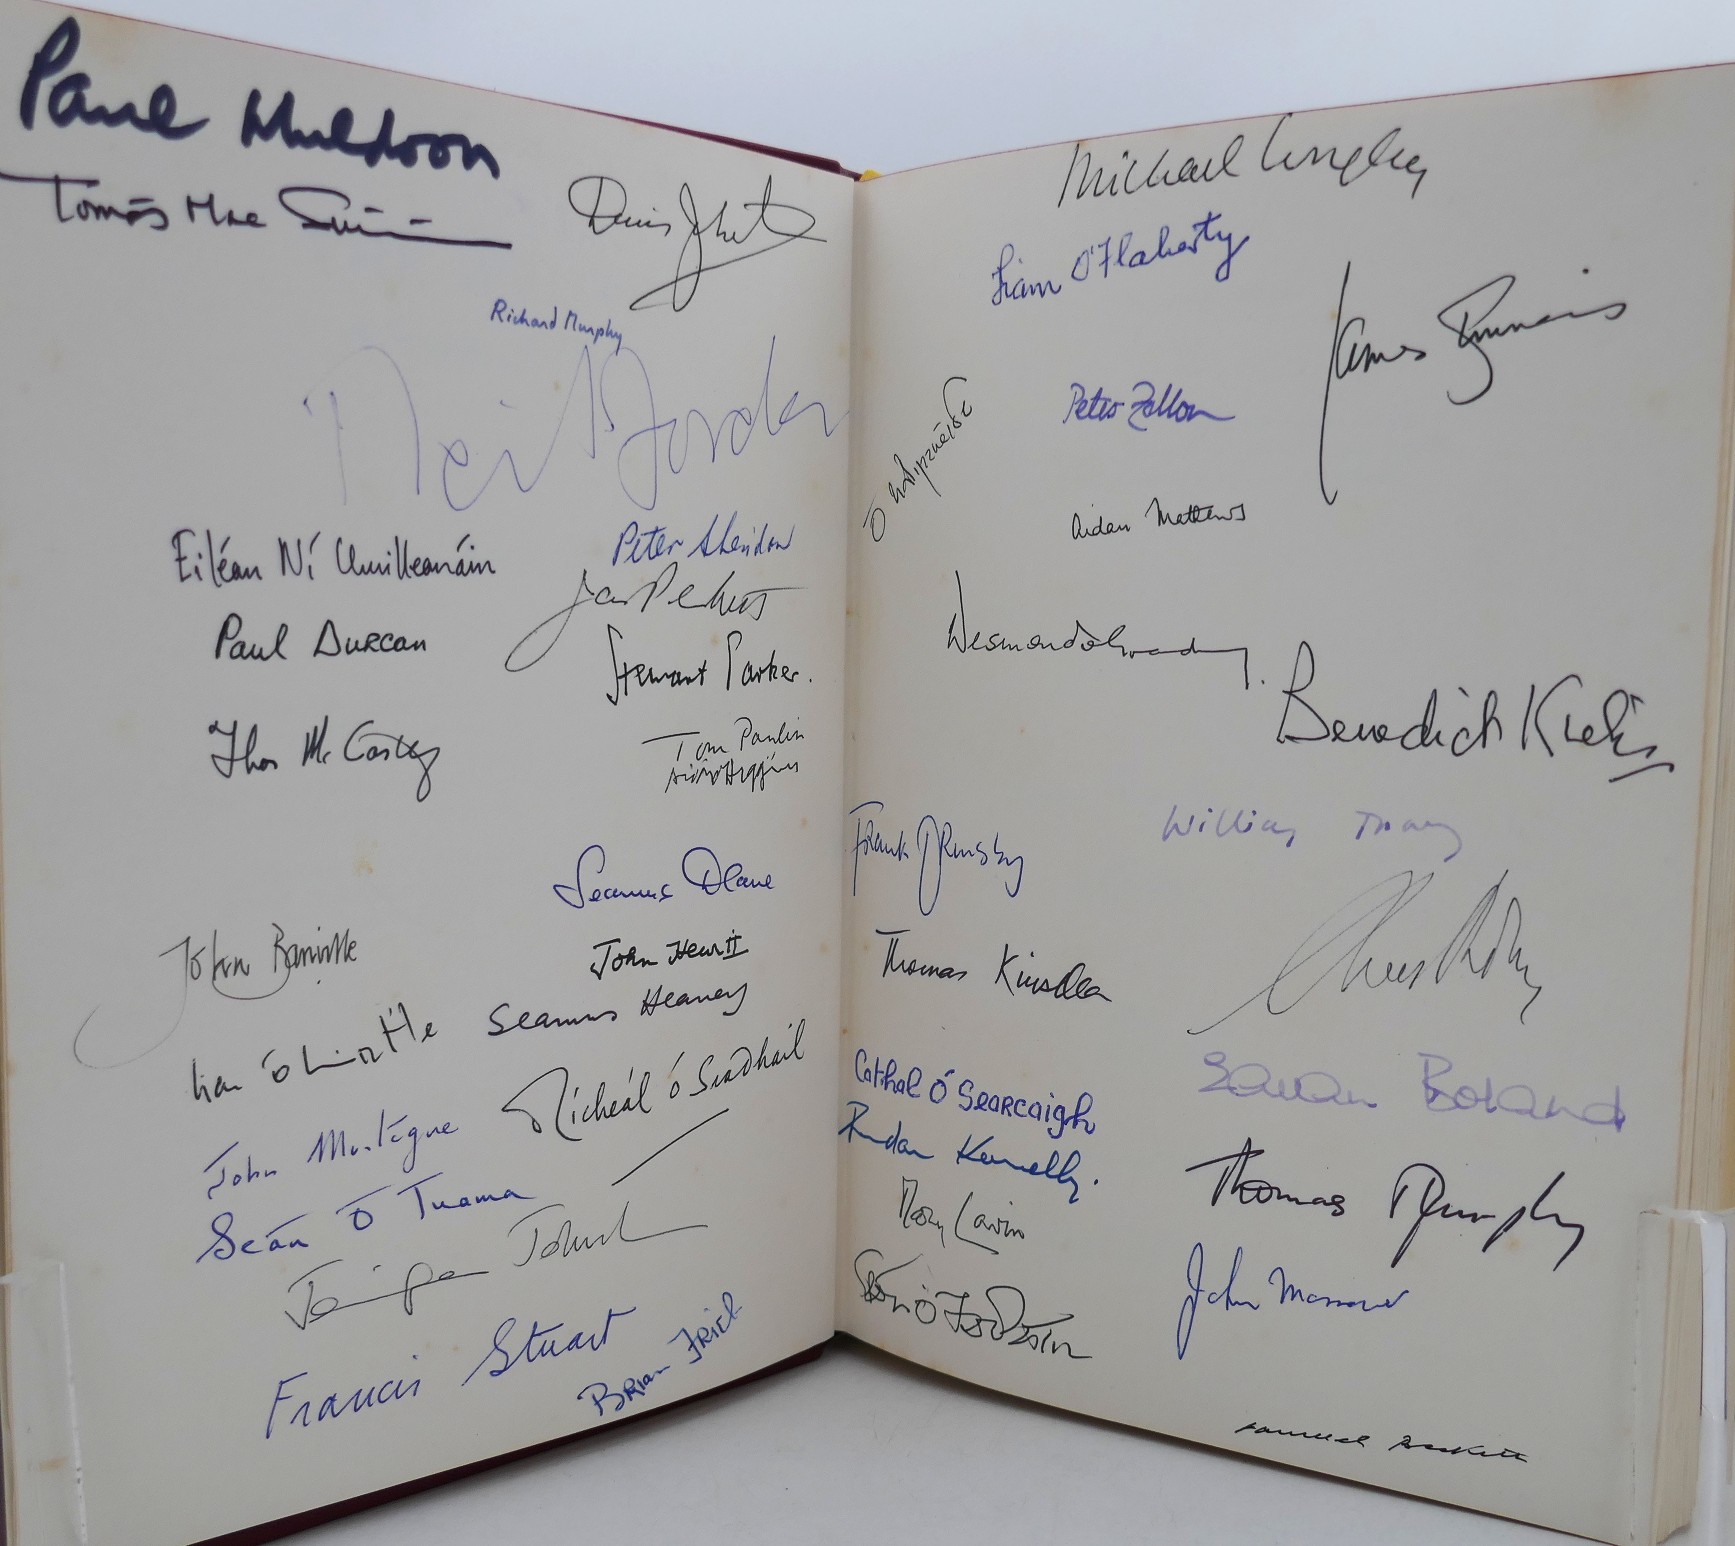 Paul Muldoon
Tomás Mac Síomóin
Denis Johnston
Richard Murphy
Neil Jordan
Eiléan Ní Chuilleanáin
Peter Sheridan
Paul Durcan
Stewart Parker.
Thos McCarthy
Tom Paulin
Aidan Higgins
Seamus Deane
John Banville
John Hewitt
Seamus Heaney
Liam Ó
John Montague
Mícheál Ó Siadhail
Seán Ó Tuama
Jennifer Johnston
Francis Stuart
Brian Friel
Michael Longley
Liam O'Flaherty
James Simmons
Peter Fallon
Aidan Mathews
Desmond O'Grady.
Benedict Kiely
Frank Ormsby
William Trevor
Thomas Kinsella
Cathal Ó Searcaigh
Eavan Boland
Brendan Kennelly.
Mary Lavin
Thomas Murphy
Seán Ó
John Morrow
Samuel Beckett